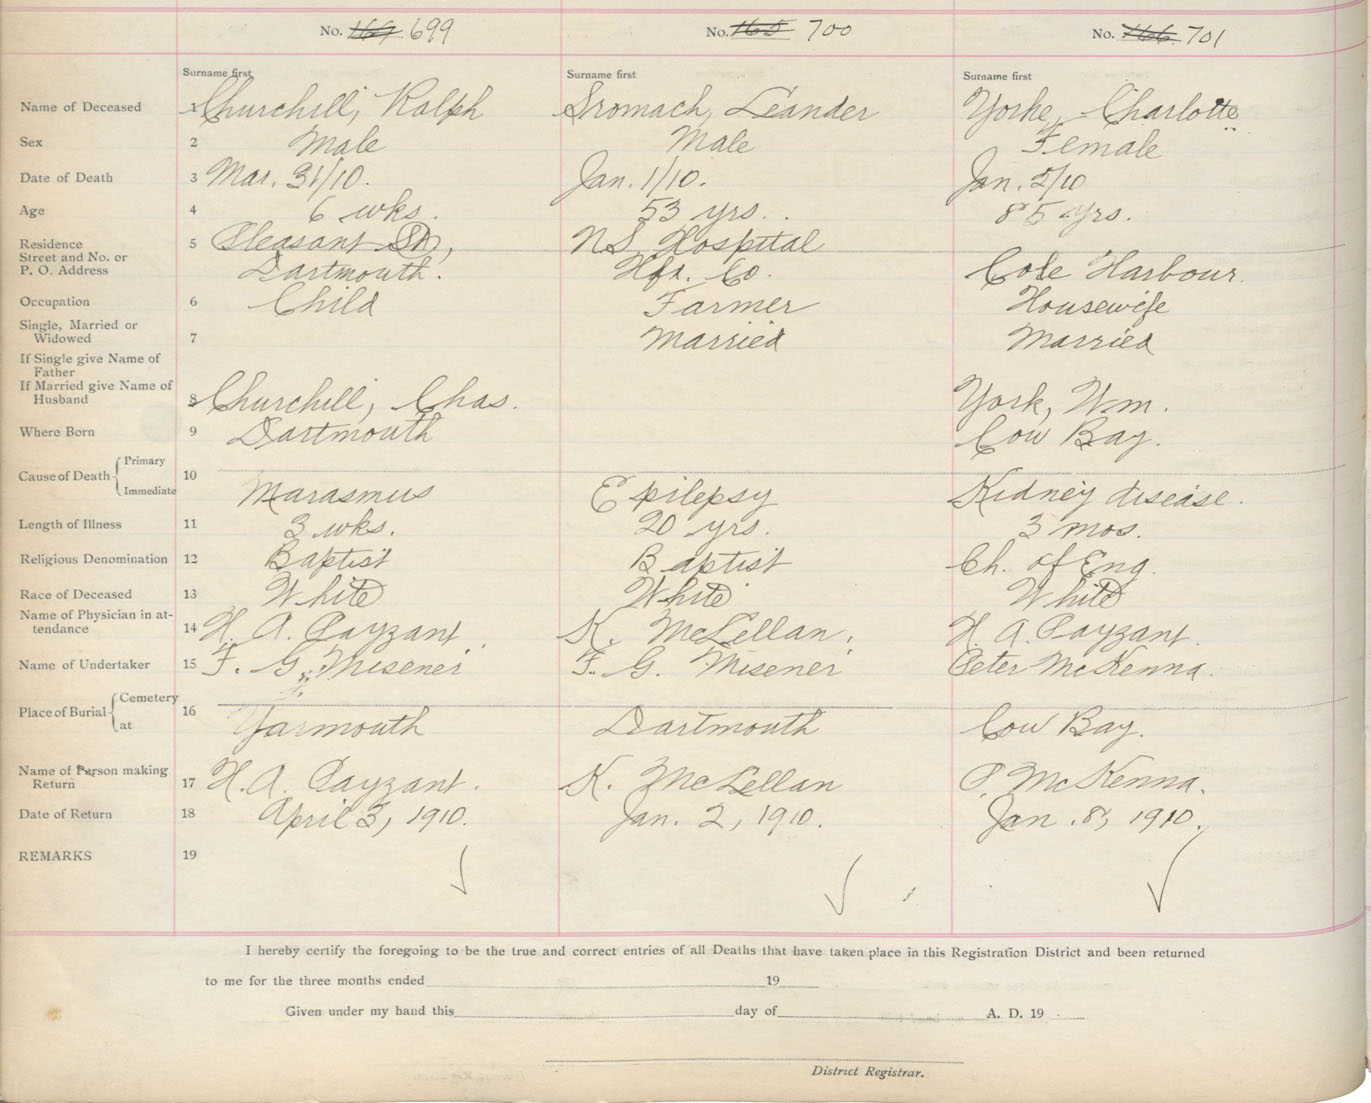 No. 164 699 No. 165 700 No. 166 701
Surname first Surname first Surname first
Name of Deceased 1 Churchill, Ralph Sromach, Leander Yorke, Charlotte
Sex 2 Male Male Female
Date of Death 3 Mar. 31/10. Jan. 1/10. Jan. 2/10
Age 4 6 wks. 53 yrs. 85 yrs.
Residence 5 Pleasant St, N S Hospital
Street and No. or
P. O. Address Dartmouth. Hfx. Co. Cole Harbour.
Occupation 6 Child Farmer Housewife
Single, Married or
Widowed 7 Married Married
If Single give Name of
Father
If Married give Name of
Husband 8 Churchill, Chas. York, Wm.
Where Born 9 Dartmouth Cow Bay.
Cause of Death Primary 10
Immediate Marasmus Epilepsy Kidney disease.
Length of Illness 11 3 wks. 20 yrs. 3 mos.
Religious Denomination 12 Baptist Baptist Ch. of Eng.
Race of Deceased 13 White White White
Name of Physician in at-
tendance 14 H. A. Payzant K. McLellan. H. A. Payzant.
Name of Undertaker 15 F. G. Misener F. G. Misener Peter McKenna.
Place of Burial Cemetery 16
at Yarmouth Dartmouth Cow Bay.
Name of Person making
Return 17 H. A. Payzant. K. McLellan P. McKenna.
Date of Return 18 April 3, 1910. Jan. 2, 1910. Jan. 8, 1910.
REMARKS 19
I hereby certify the foregoing to be the true and correct entries of all Deaths that have taken place in this Registration District and been returned
to me for the three months ended 19
Given under my hand this day of A. D. 19
District Registrar.